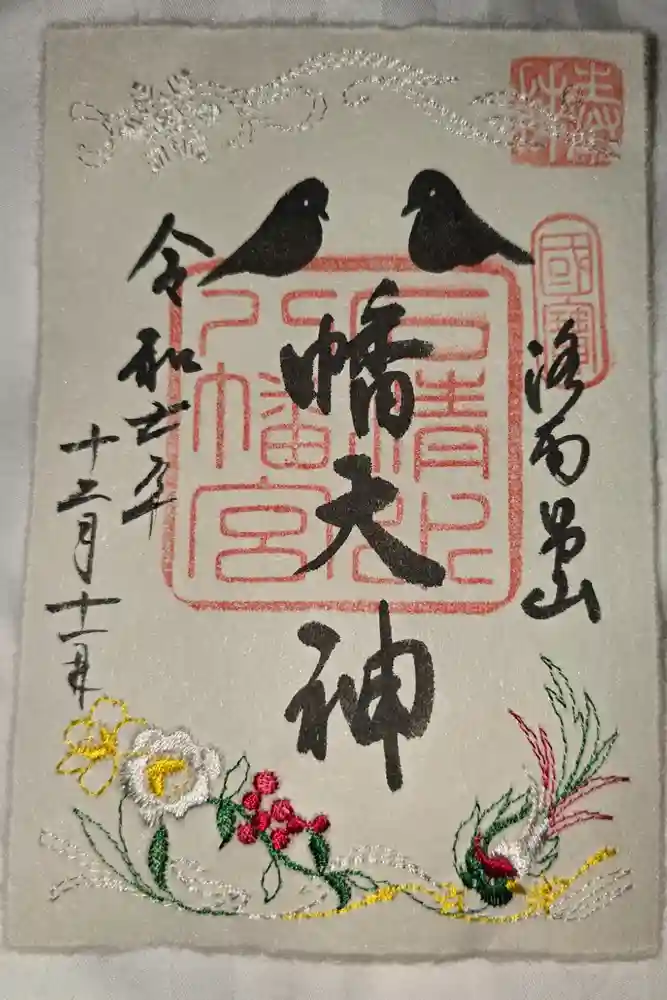 國寶
洛南男山
幡大神
石清水
八幡宮
令和七年
十二月十一日